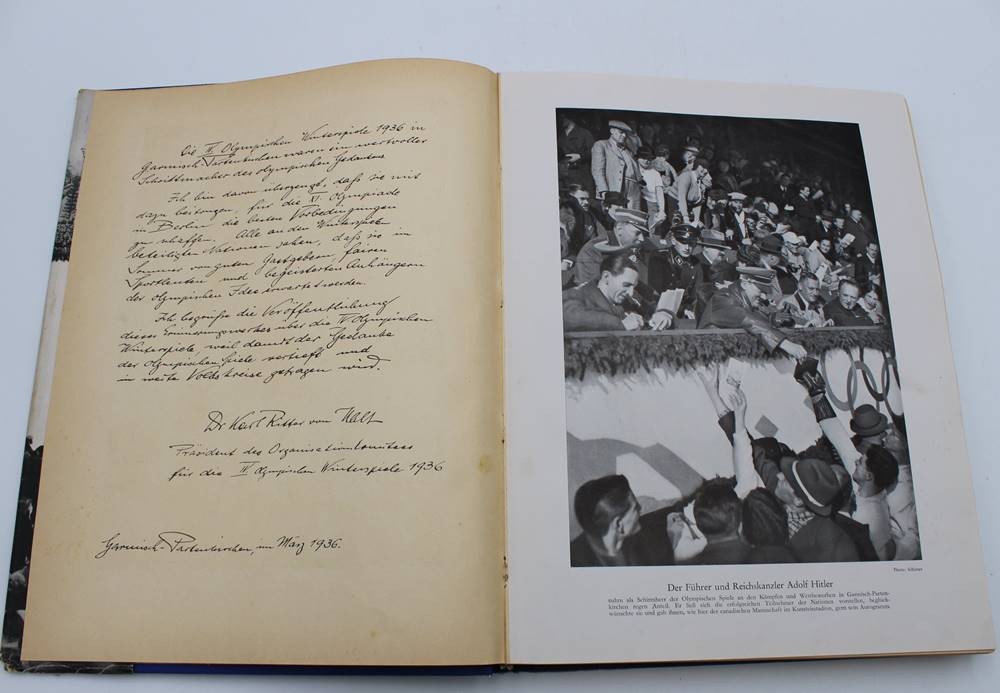 Die IV. Olympischen Winterspiele 1936 in
Garmisch-Partenkirchen waren ein wertvoller
Schrittmacher des olympischen Gedankens.
Ich bin davon überzeugt, daß sie mit
dazu beitragen, für die XI. Olympiade
in Berlin die besten Vorbedingungen
zu schaffen. Alle an den Winterspielen
beteiligten Nationen sahen, daß sie im
Sommer von guten Gastgebern, fairen
Sportleuten und begeisterten Anhängern
der olympischen Idee erwartet werden.
Ich begrüße die Veröffentlichung
dieses Erinnerungswerkes über die IV. Olympischen
Winterspiele, weil damit der Gedanke
der Olympischen Spiele vertieft und
in weite Volkskreise getragen wird.
Dr Karl Ritter von Halt
Präsident des Organisationskomitees
für die IV. Olympischen Winterspiele 1936
Garmisch-Partenkirchen, im März 1936.
Photo: Schirner
Der Führer und Reichskanzler Adolf Hitler
nahm als Schirmherr der Olympischen Spiele an den Kämpfen und Wettbewerben in Garmisch-Parten-
kirchen regen Anteil. Er ließ sich die erfolgreichen Teilnehmer der Nationen vorstellen, beglück-
wünschte sie und gab ihnen, wie hier der canadischen Mannschaft im Kunsteisstadion, gern sein Autogramm